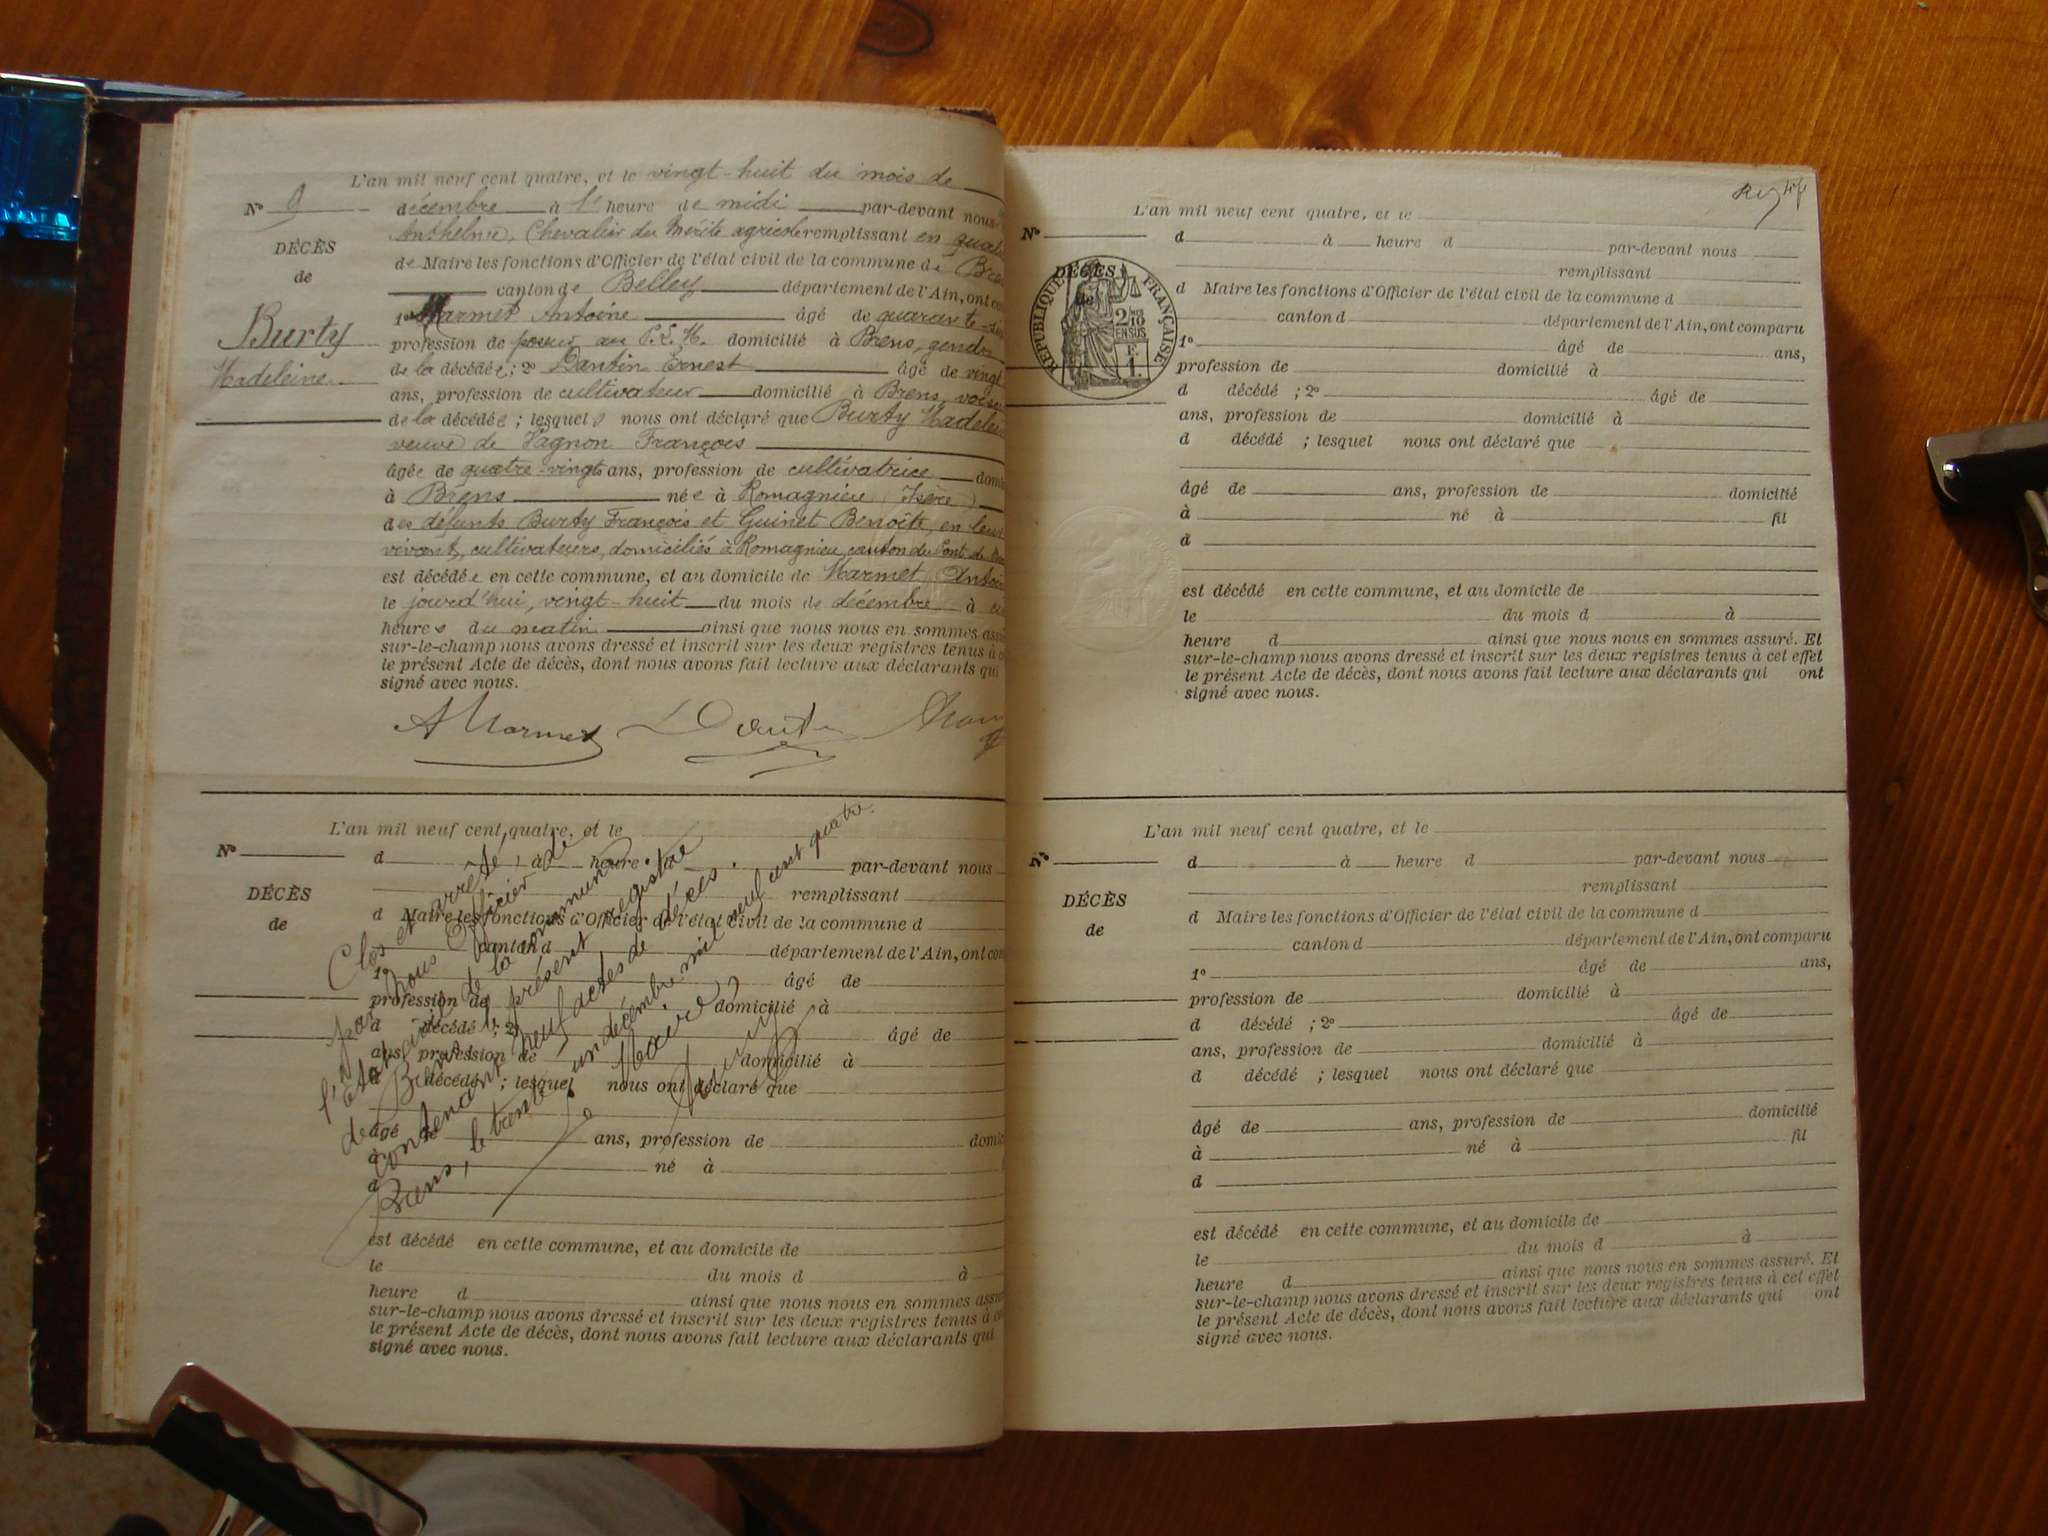 L'an mil neuf cent quatre, et le vingt-huit du mois de
N° 9
décembre à 1e heure de midi par-devant nous
Anthelme, Chevalier du Mérite agricole remplissant en
DÉCÈS
de Maire les fonctions d'Officier de l'état civil de la commune de
de
canton de Belley département de l'Ain, ont
1° Marmet Antoine âgé de
Burty
profession de au P.L.M. domicilié à Brens,
Madeleine
de la décédée; 2° Dantin Ernest âgé de vingt
ans, profession de cultivateur domicilié à Brens,
de la décédée; lesquels nous ont déclaré que Burty
veuve de Vagnon François
âgée de quatre-vingts ans, profession de cultivatrice
à Brens née à Romagnieu (Isère)
des défunts Burty François et Guinet Benoîte, en leur
vivant, cultivateurs, domiciliés à Romagnieu, canton du Pont de
est décédée en cette commune, et au domicile de Marmet
le jourd'hui, vingt-huit du mois de décembre à
heures du matin ainsi que nous nous en sommes
sur-le-champ nous avons dressé et inscrit sur les deux registres tenus à
le présent Acte de décès, dont nous avons fait lecture aux déclarants qui
signé avec nous.
A Marmet
L'an mil neuf cent quatre, et le
N°
d à heure d par-devant nous
remplissant
DÉCÈS
d Maire les fonctions d'Officier de l'état civil de la commune d
de
canton d département de l'Ain, ont
1° âgé de
profession de domicilié à
d décédé ; 2° âgé de
ans, profession de domicilié à
d décédé ; lesquel nous ont déclaré que
âgé de ans, profession de
à né à
d
est décédé en cette commune, et au domicile de
le du mois d à
heure d ainsi que nous nous en sommes
sur-le-champ nous avons dressé et inscrit sur les deux registres tenus à
le présent Acte de décès, dont nous avons fait lecture aux déclarants qui
signé avec nous.
Clos et arrêté,
par nous Officier de
l'Etat civil de la commune
de Brens le présent registre
contenant neuf actes de décès.
Brens, le trente un décembre mil neuf cent quatre.
Le Maire,
L'an mil neuf cent quatre, et le
N°
d à heure d par-devant nous
remplissant
DÉCÈS
de
RÉPUBLIQUE FRANÇAISE
2/10 EN SUS
F. 1.
d Maire les fonctions d'Officier de l'état civil de la commune d
canton d département de l'Ain, ont comparu
1° âgé de ans,
profession de domicilié à
d décédé ; 2° âgé de
ans, profession de domicilié à
d décédé ; lesquel nous ont déclaré que
âgé de ans, profession de domicilié
à né à fil
d
est décédé en cette commune, et au domicile de
le du mois d à
heure d ainsi que nous nous en sommes assuré. Et
sur-le-champ nous avons dressé et inscrit sur les deux registres tenus à cet effet
le présent Acte de décès, dont nous avons fait lecture aux déclarants qui ont
signé avec nous.
L'an mil neuf cent quatre, et le
N°
d à heure d par-devant nous
remplissant
DÉCÈS
d Maire les fonctions d'Officier de l'état civil de la commune d
de
canton d département de l'Ain, ont comparu
1° âgé de ans,
profession de domicilié à
d décédé ; 2° âgé de
ans, profession de domicilié à
d décédé ; lesquel nous ont déclaré que
âgé de ans, profession de domicilié
à né à fil
d
est décédé en cette commune, et au domicile de
le du mois d à
heure d ainsi que nous nous en sommes assuré. Et
sur-le-champ nous avons dressé et inscrit sur les deux registres tenus à cet effet
le présent Acte de décès, dont nous avons fait lecture aux déclarants qui ont
signé avec nous.